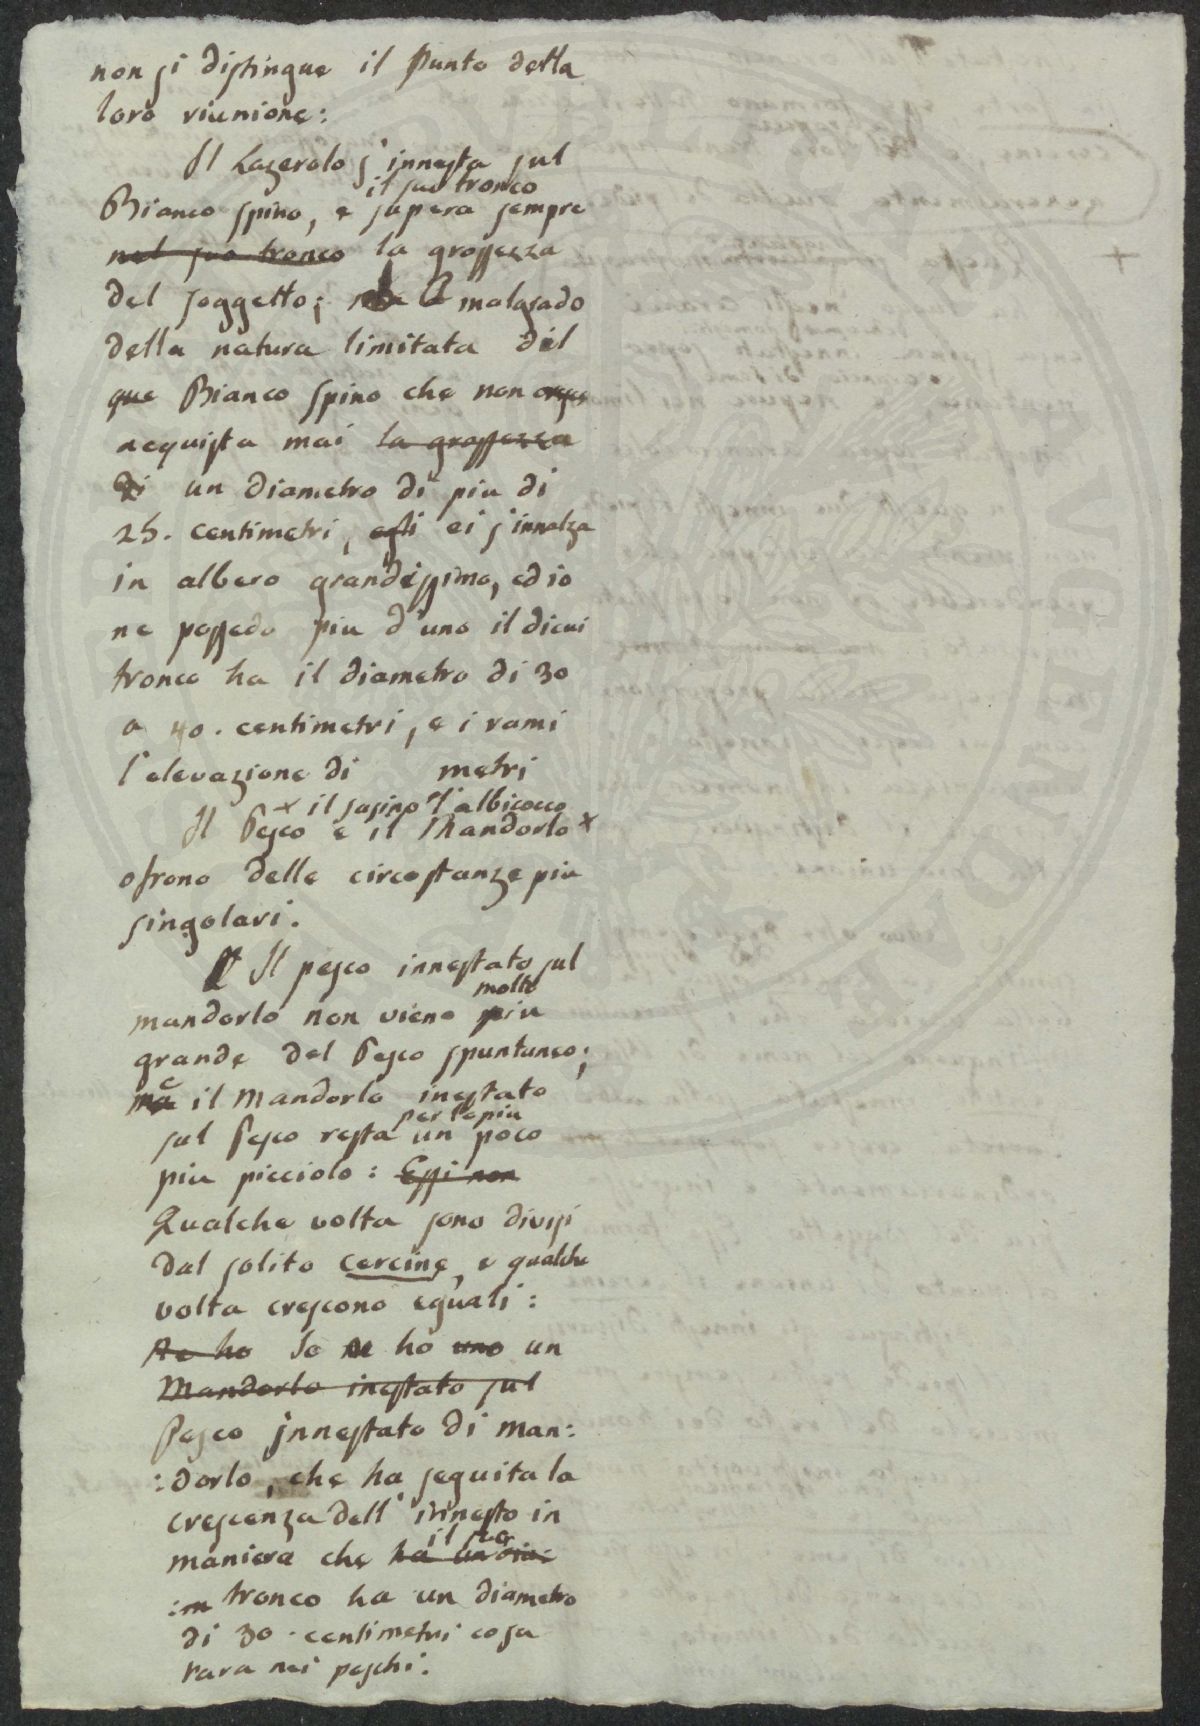 non si distingue il Punto della
loro riunione:
Il Lazerolo s'innesta sul
il suo tronco
Bianco spino, e supera sempre
nel suo tronco la grossezza
del soggetto; malgrado
della natura limitata del
que Bianco spino che non
acquista mai la grossezza
di un diametro di piu di
25. centimetri, egli ei s'innalza
in albero grandissimo, ed io
ne possedo piu d'uno il dicui
tronco ha il diametro di 30
a 40. centimetri, e i rami
l'elevazione di metri
x il susino l'albicocco
Il Pesco e il Mandorlo x
ofrono delle circostanze piu
singolari.
Il pesco innestato sul
molto
mandorlo non viene piu
grande del Pesco spuntaneo;
ma e il Mandorlo inestato
per lo piu
sul Pesco resta un poco
piu picciolo: Essi non
Qualche volta sono divisi
dal solito cercine, e qualche
volta crescono eguali:
Ne ho Io ne ho uno un
Mandorlo inestato sul
Pesco innestato di man:
:dorlo, che ha seguita la
crescenza dell'innesto in
il suo
maniera che ha un dia:
:m tronco ha un diametro
di 30. centimetri cosa
rara nei peschi.